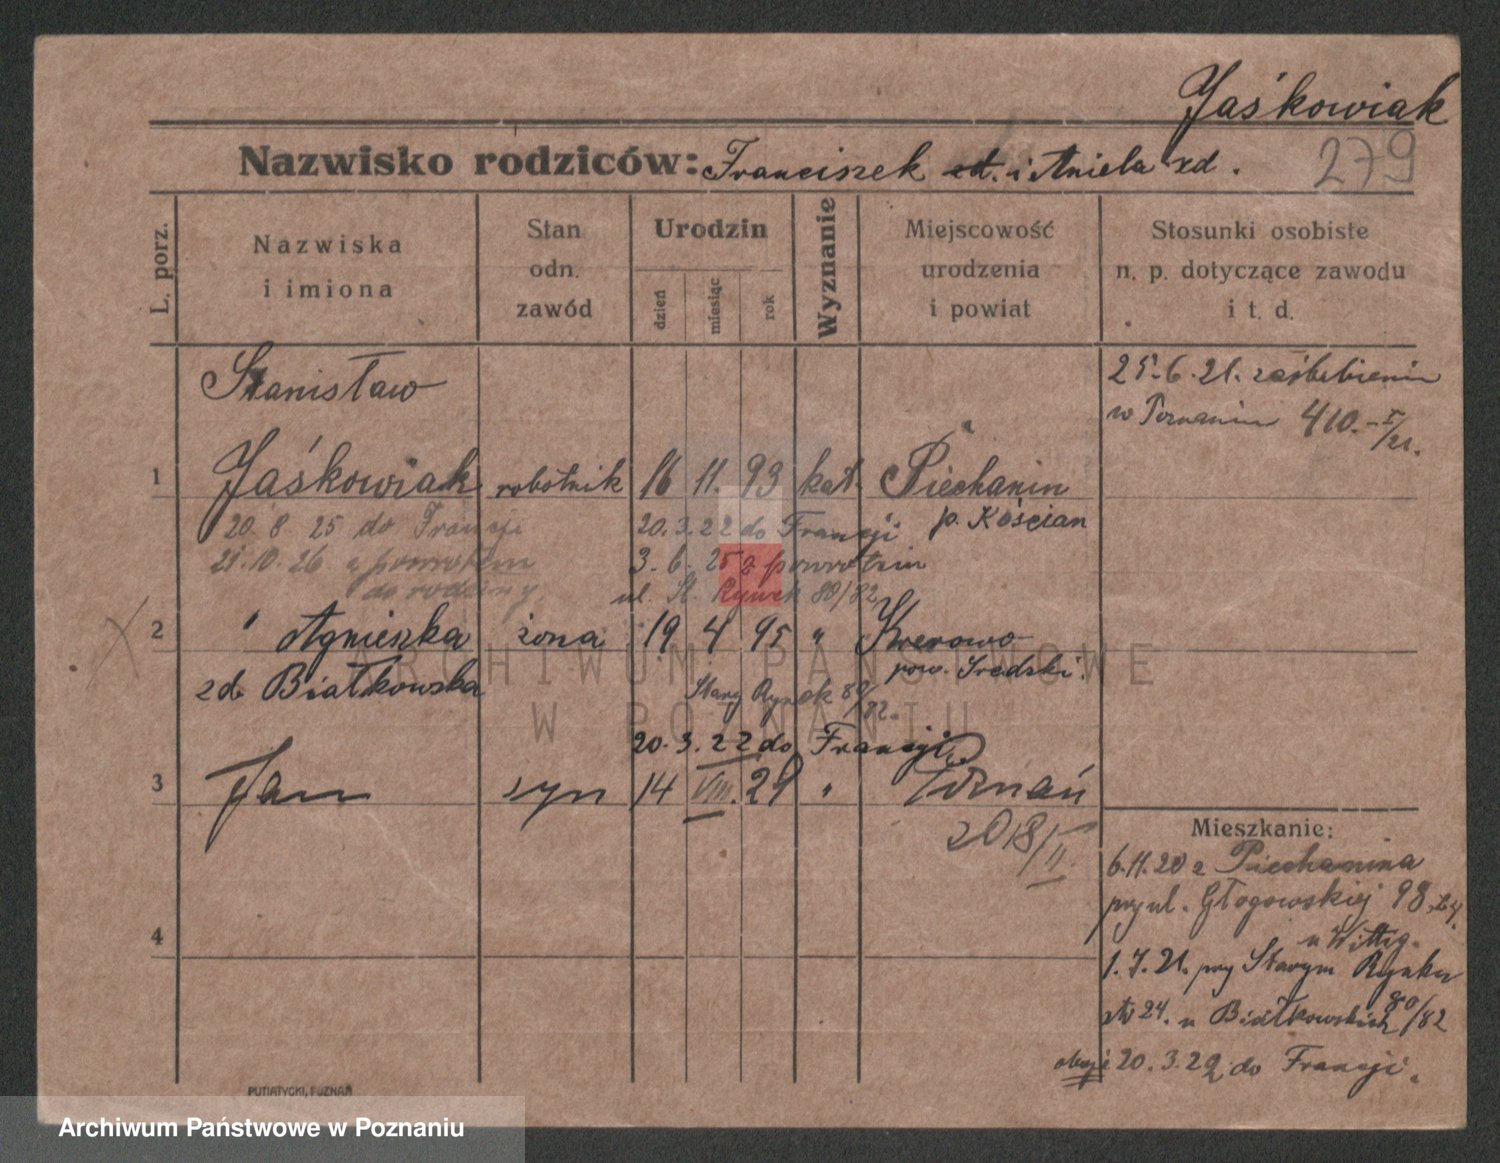 Jaśkowiak
Nazwisko rodziców: Franciszek i Aniela zd.
279
L. porz.
Nazwiska
i imiona
Stan
odn.
zawód
Urodzin
dzień
miesiąc
rok
Wyznanie
Miejscowość
urodzenia
i powiat
Stosunki osobiste
n. p. dotyczące zawodu
i t. d.
Stanisław
25.6.21. zaślubieni
w Poznaniu 410.-I/21.
1 Jaśkowiak robotnik 16 11. 93 kat. Piechanin
p. Kościan
20. 8. 25 do Francji 20.3.22 do Francji
21.10.26 z powrotem 3. 6. 25 z powrotem
do rodziny. ul. St. Rynek 80/82
2 " Agnieszka żona 19 4 95 " Krerowo
zd. Białkowska pow. Średzki.
Stary Rynek 80/82.
20.3.22 do Francji
3 Jan syn 14 VIII. 21 " Poznań
2018/II.
4
Mieszkanie:
6.11.20 z Piechanina
przy ul. Głogowskiej 98
u Wittig.
1.7.21. przy Starym Rynku
80/82
24. u Białkowskich
20.3.22 do Francji.
PUTIATYCKI, POZNAŃ
ARCHIWUM PAŃSTWOWE
W POZNANIU
Archiwum Państwowe w Poznaniu